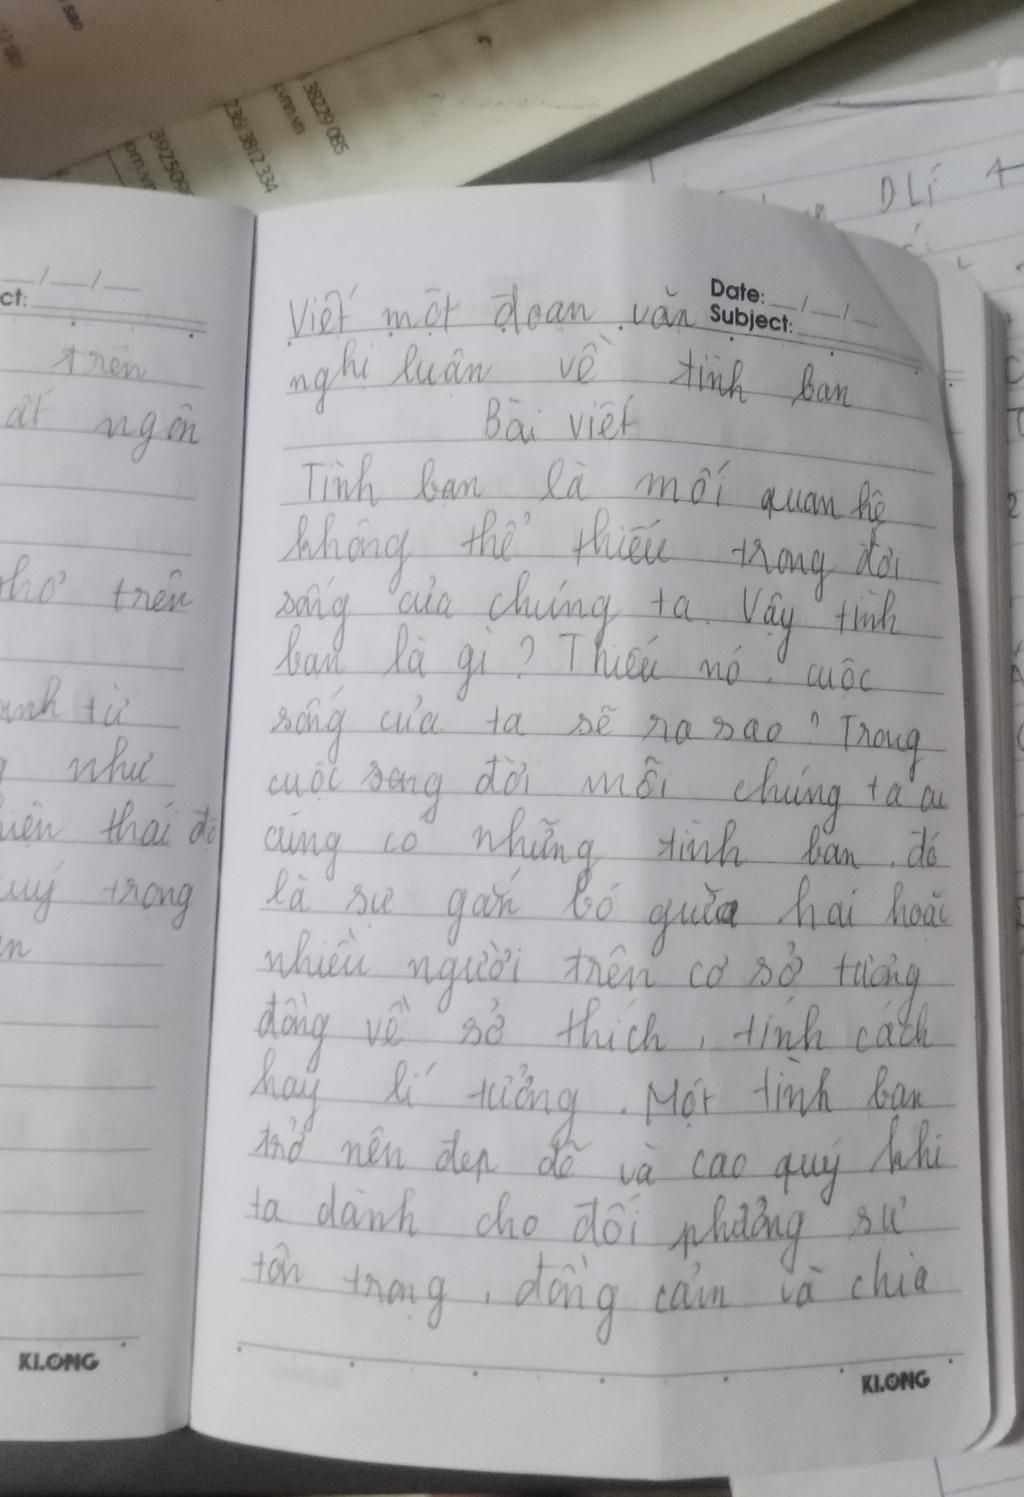 sao
38229 085
k.vmn.vn
236) 3812 334
392509
om.vn
DLí
__/__/__
ct:
trên
ất ngôn
thơ trên
anh từ
như
iện thái độ
uý trọng
n
KLONG
Date: __/__/__
Subject:
Viết một đoạn văn
nghị luận về tình bạn
Bài viết
Tình bạn là mối quan hệ
không thể thiếu trong đời
sống của chúng ta. Vậy tình
bạn là gì? Thiếu nó, cuộc
sống của ta sẽ ra sao? Trong
cuộc song đời mỗi chúng ta ai
cũng có những tình bạn, đó
là sự gắn bó giữa hai hoặc
nhiều người trên cơ sở tương
đồng về sở thích, tính cách
hay lí tưởng. Một tình bạn
trở nên đẹp đẽ và cao quý khi
ta dành cho đối phương sự
tôn trọng, đồng cảm và chia
KLONG